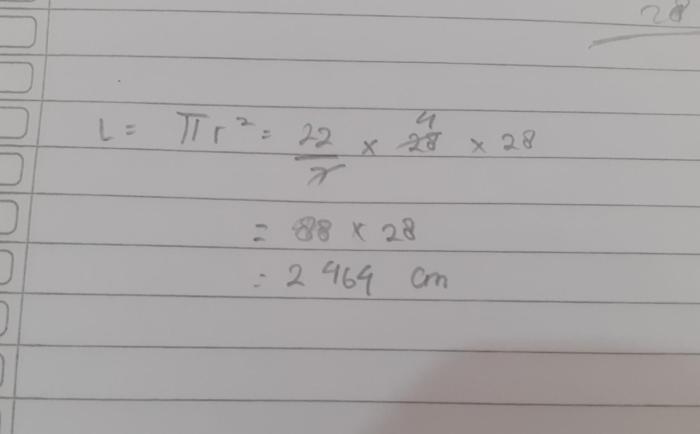 28
L = πr² = 22/7 × 28 4 × 28
= 88 × 28
= 2 464 cm